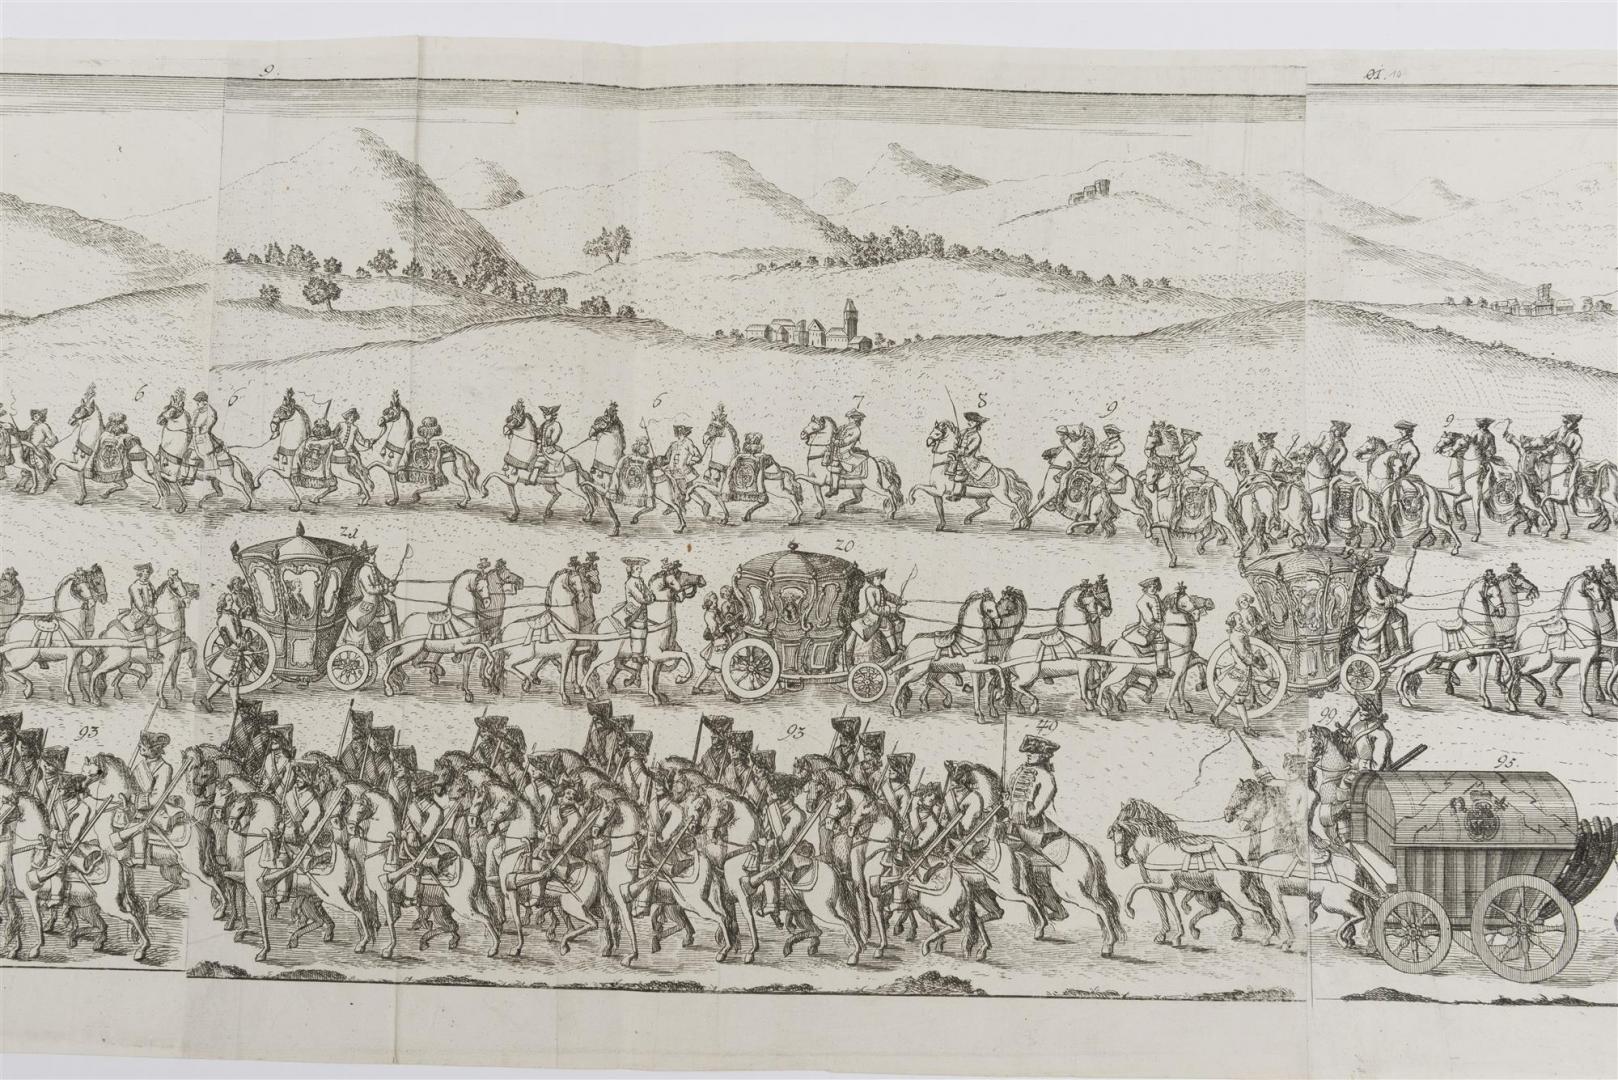 9. 01. 10
6 6 6 7 8 9 9
21 20
93 93 40 99 95